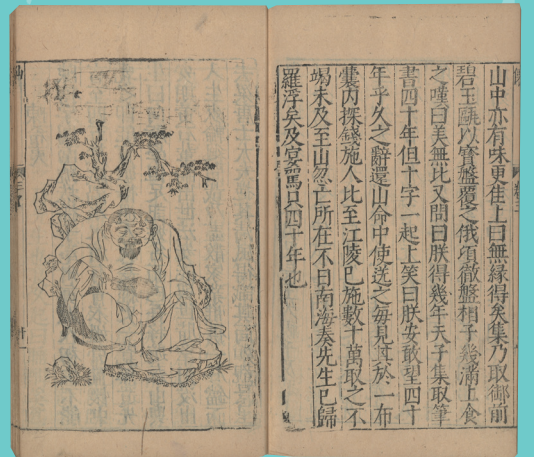 山中亦有味更佳上曰無緣得矣集乃取御前
碧玉甌以寶盤覆之俄頃徹盤相子幾滿上食
之嘆曰美無比又問曰朕得幾年天子集取筆
書四十年但十字一起上笑曰朕安敢望四十
年乎久之辭還山命中使送之每見其於一布
囊内探錢施人比至江陵已施數十萬取之不
竭未及至山忽亡所在不日南海奏先生已歸
羅浮矣及宴駕只四十年也
仙